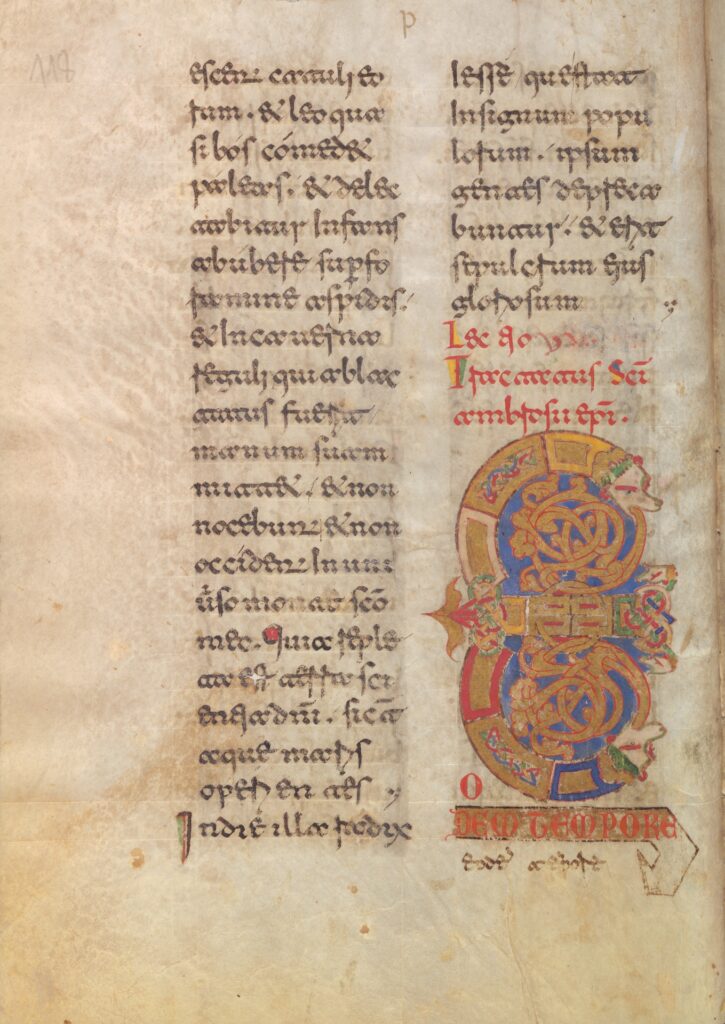 p
118
escent catuli eo
rum. et leo qua
si bos comedet
paleas. et delec
tabitur Infans
ab ubere sup fo
ramine aspidis.
et In caverna
reguli qui ablac
tatus fuerit
manum suam
mittet. et non
nocebunt et non
occident In uni
uso monte scō
meo. Quia reple
ta est terra sci
entia dnī. sicut
aque maris
operientes
In die illa radix
Iesse qui stat
In signum popu
lorum. ipsum
gentes depreca
buntur. et erit
sepulcrum eius
gloriosum
Lectio
tractatus Scī
ambrosii epī.
E
O
DEM TEMPORE